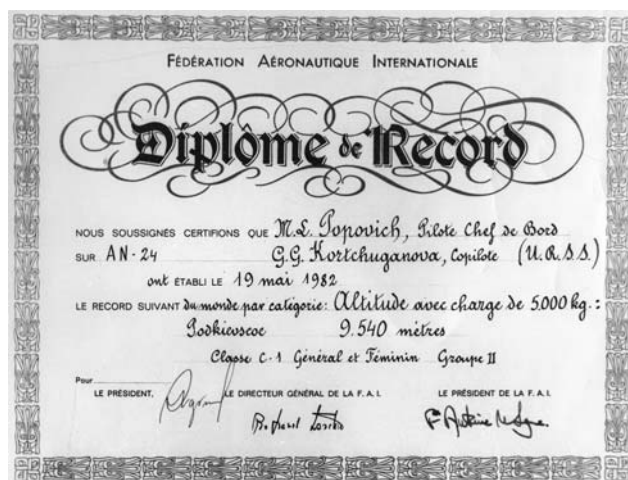 FÉDÉRATION AÉRONAUTIQUE INTERNATIONALE
Diplôme de Record
NOUS SOUSSIGNÉS CERTIFIONS QUE M.L. Popovich, Pilote Chef de Bord
SUR AN-24 G.G. Kortchuganova, Copilote (U.R.S.S.)
ont ÉTABLI LE 19 mai 1982
LE RECORD SUIVANT du monde par catégorie: Altitude avec charge de 5.000 kg.:
Podkievscoe 9.540 mètres
Classe C-1 Général et Féminin Groupe II
Pour
LE PRÉSIDENT, LE DIRECTEUR GÉNÉRAL DE LA F.A.I. LE PRÉSIDENT DE LA F.A.I.